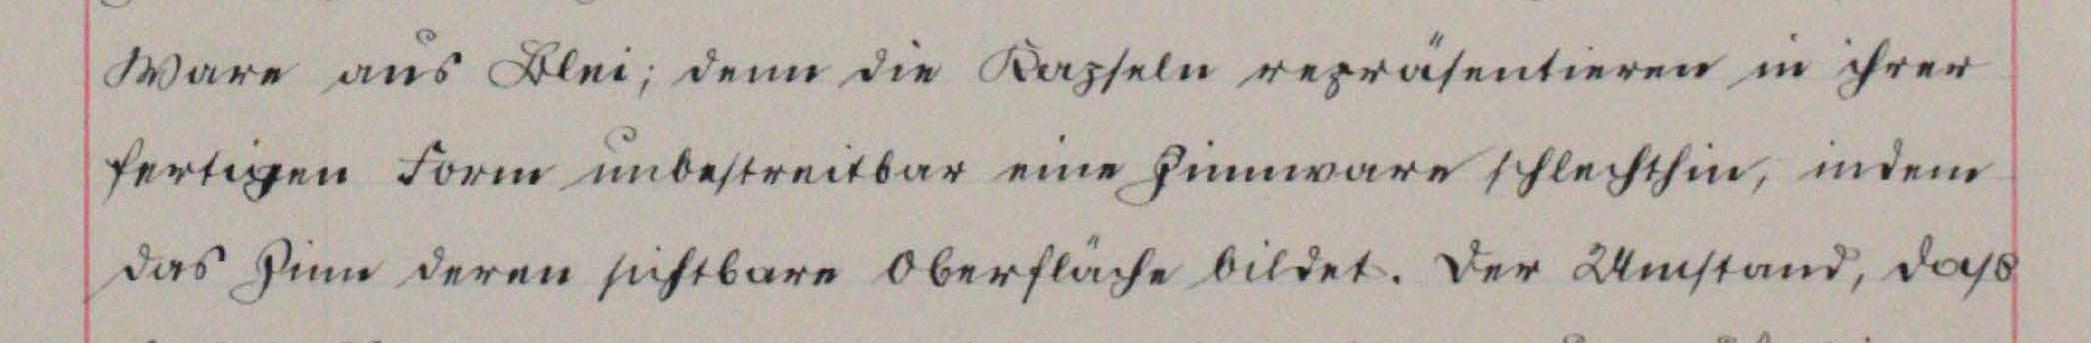 Ware aus Blei; denn die Kapseln repräsentieren in ihrer
fertigen Form unbestreitbar eine Zinnware schlechthin, indem
das Zinn deren sichtbare Oberfläche bildet. Der Umstand, daß